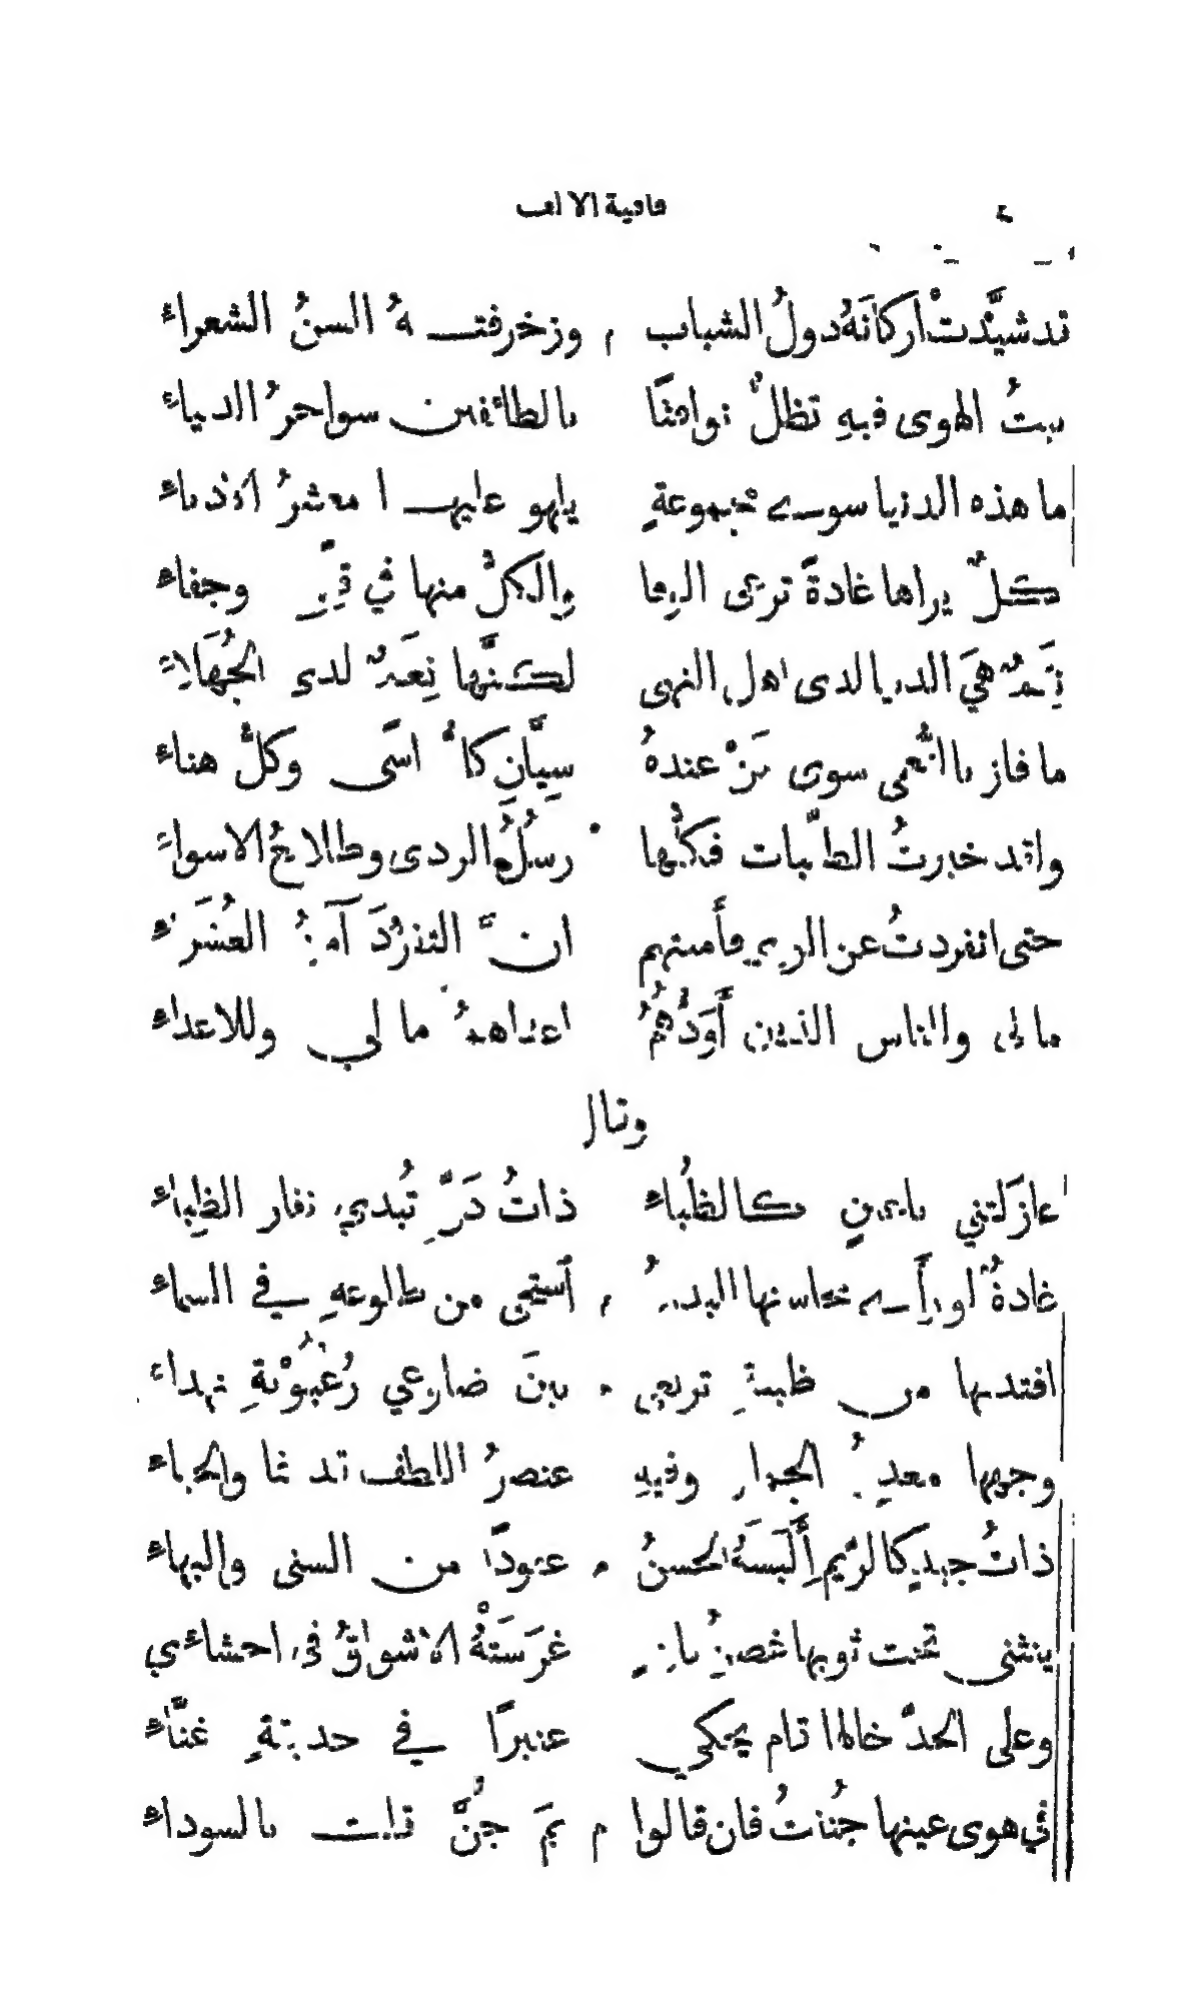 قافية الالف ٤
قد شيَّدتْ اركانَهُ دولُ الشباب م وزخرفتهُ السنُ الشعراءِ
بيتُ الهوى فيهِ تظلُّ نوافثًا بالطائفين سواحرُ
ما هذه الدنيا سوى يلهو عليها معشرُ
كلٌّ يراها غادةً ترعى الوفا والكلُّ منها في وجفاءِ
هيَ الدنيا لدى اهل النهى لكنَّها نِعَمٌ لدى الجُهَلاءِ
ما فاز بالنُّعمى سوى مَنْ عندهُ سِيَّانِ كلُّ اسًى وكلُّ هناءِ
ولقد خبرتُ الطيّبات فكلُّها رسُلُ الردى وطلائعُ الاسواءِ
حتى انفردتُ عن فأمنتهم انَّ التفرُّدَ
ما لي والناس الذين أَوَدُّهُمُ اعداهمُ ما لي وللاعداءِ
وقال
غازلتني باعينٍ كالظُباءِ ذاتُ دَلٍّ تُبدي نفار الظِباءِ
غادةٌ لو رأى محاسنها البدرُ م استحى من طلوعهِ في السماءِ
افتديها من ظبيةٍ ترتعي م بين ضلوعي رُعْبُوْبةٍ
وجهها معدنُ الجمال وفيهِ عنصرُ اللطف قد نما والحياءِ
ذاتُ جيدٍ كالرّيم أَلْبَسَهُ الحسنُ م عقودًا من السنى والبهاءِ
ينثني تحت ثوبها غصنُ بانٍ غَرَسَتْهُ الاشواقُ في احشائي
وعلى الخدّ خالها قام يحكي عنبرًا في حديقةٍ غنَّاءِ
في هوى عينها جُننتُ فان قالوا م بمَ جُنَّ قلت بالسوداءِ